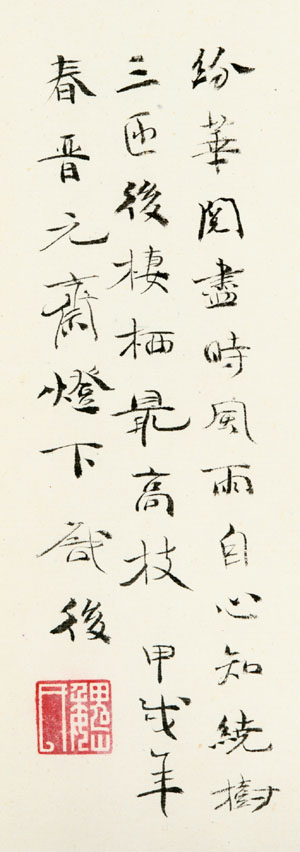 紛華閱盡時風雨自心知繞樹
三匝後棲栖最高枝 甲戌年
春晋元齋燈下 啟後